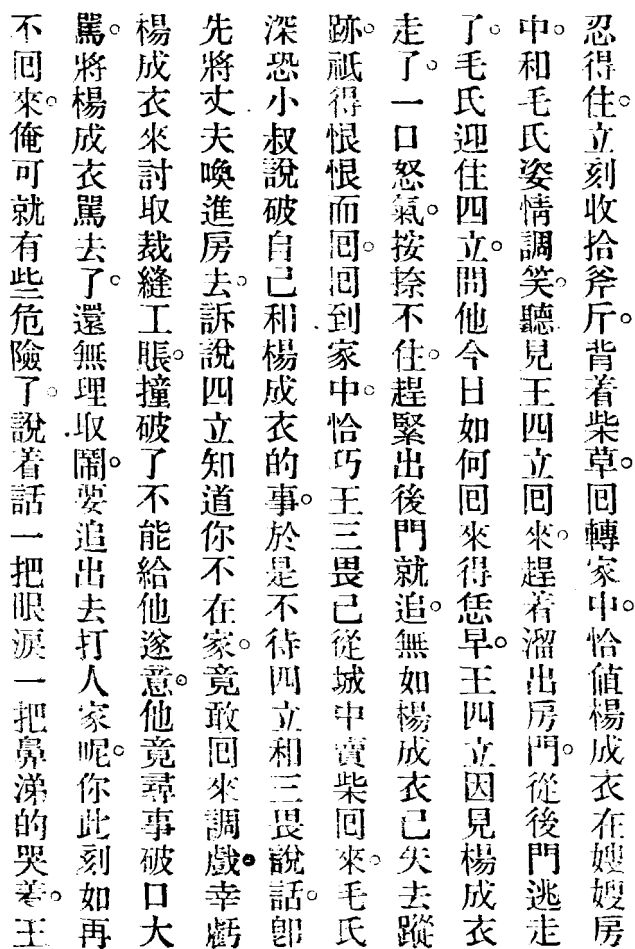 忍得住。立刻收拾斧斤。背着柴草。回轉家中。恰値楊成衣在嫂嫂房
中。和毛氏姿情調笑。聽見王四立回來。趕着溜出房門。從後門逃走
了。毛氏迎住四立。問他今日如何回來得恁早。王四立因見楊成衣
走了。一口怒氣。按捺不住。趕緊出後門就追。無如楊成衣已失去蹤
跡。祗得恨恨而回。回到家中。恰巧王三畏已從城中賣柴回來。毛氏
深恐小叔說破自己和楊成衣的事。於是不待四立和三畏說話。卽
先將丈夫喚進房去。訴說四立知道你不在家。竟敢回來調戲。幸虧
楊成衣來討取裁縫工賬。撞破了不能給他遂意。他竟尋事破口大
罵。將楊成衣罵去了。還無理取鬧。要追出去打人家呢。你此刻如再
不回來。俺可就有些危險了。說着話一把眼淚一把鼻涕的哭着。王